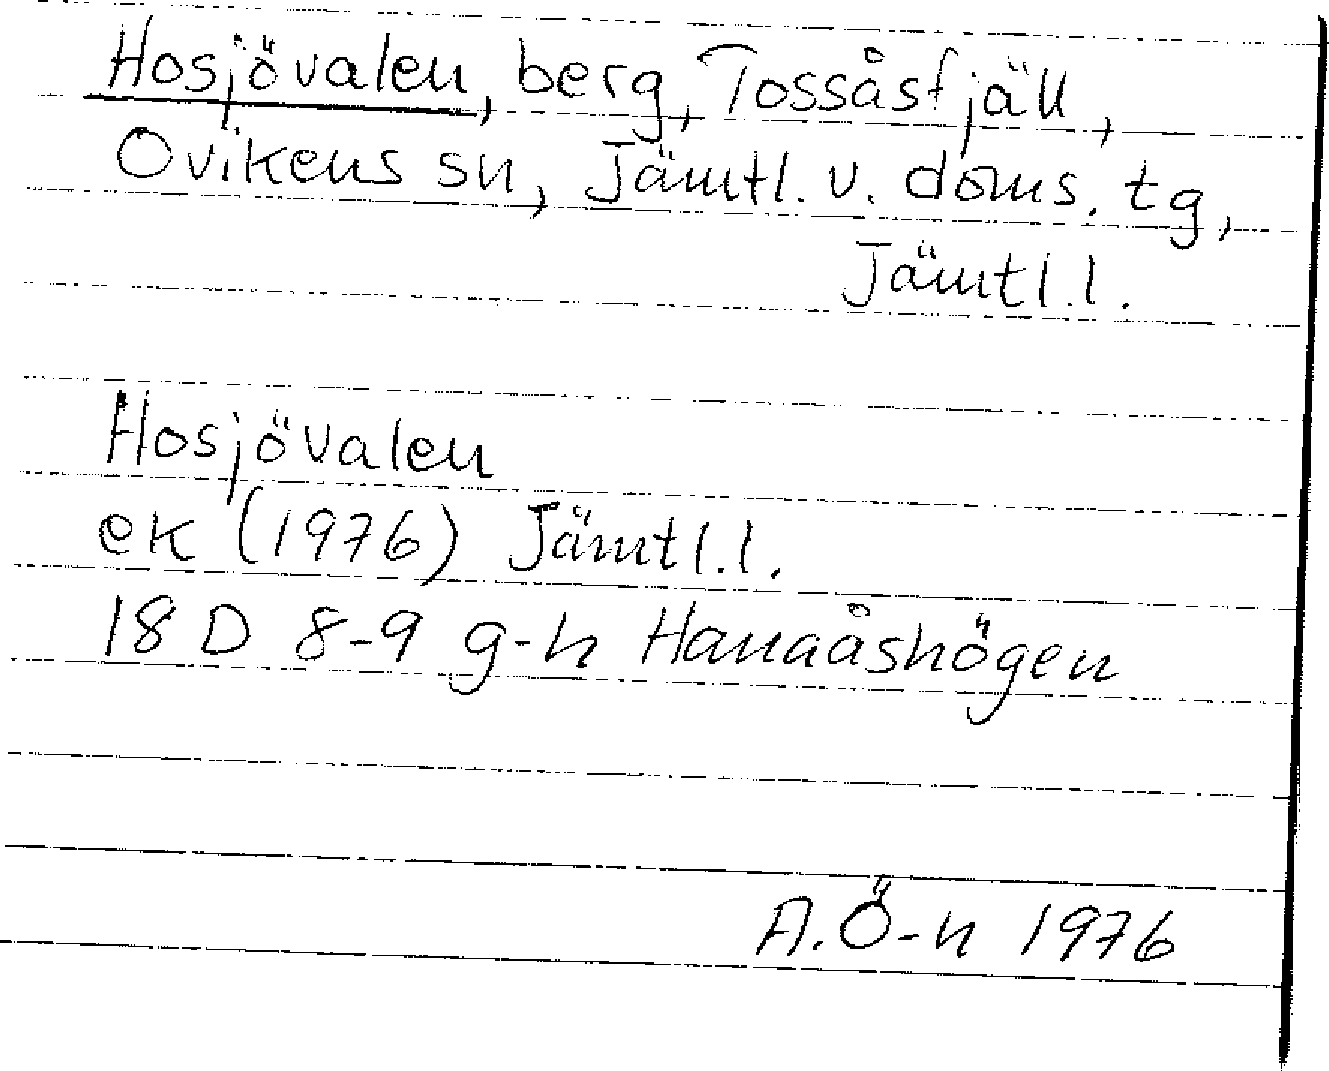 Hosjövalen, berg, Tossåsfjäll,
Ovikens sn, Jämtl. v. doms. tg,
Jämtl.l.
Hosjövalen
ek (1976) Jämtl.l.
18 D 8-9 g-h Hanaåshögen
A.Ö-n 1976